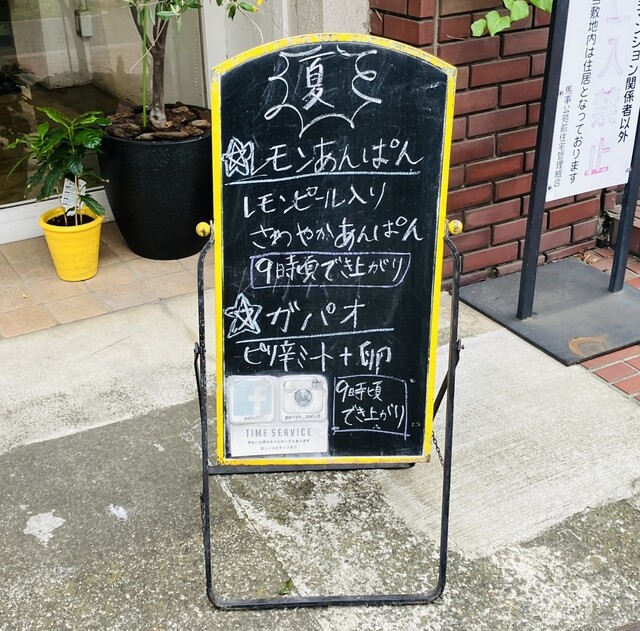 夏
☆レモンあんぱん
レモンピール入り
さわやかあんぱん
9時頃でき上がり
☆ガパオ
ピリ辛ミート+卵
9時頃
でき上がり
TIME SERVICE
ンション関係者以外
立入禁止
敷地内は住居となっております
馬事公苑前住宅管理組合